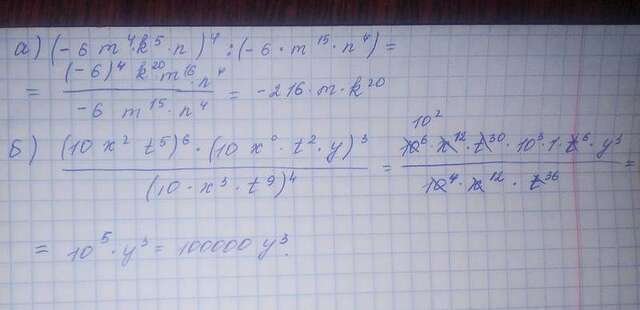 а) (-6 m⁴·k⁵·n)⁴ : (-6·m¹⁵·n⁴) =
= (-6)⁴ k²⁰·m¹⁶·n⁴ / -6 m¹⁵·n⁴ = -216·m·k²⁰
б) (10 x² t⁵)⁶·(10 x⁰·t²·y)³ / (10·x³·t⁹)⁴ = 10² 10⁶·x¹²·t³⁰·10³·1·t⁶·y³ / 10⁴·x¹²·t³⁶ =
= 10⁵·y³ = 100000 y³.